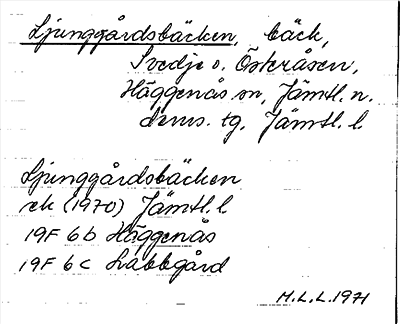 Ljunggårdsbäcken, bäck,
Svedje o. Österåsen,
Häggenås sn, Jämtl. n.
doms. tg, Jämtl. l.
Ljunggårdsbäcken
ek (1970) Jämtl. l
19F 6b Häggenås
19F 6c Labbgård
M.L.L. 1971